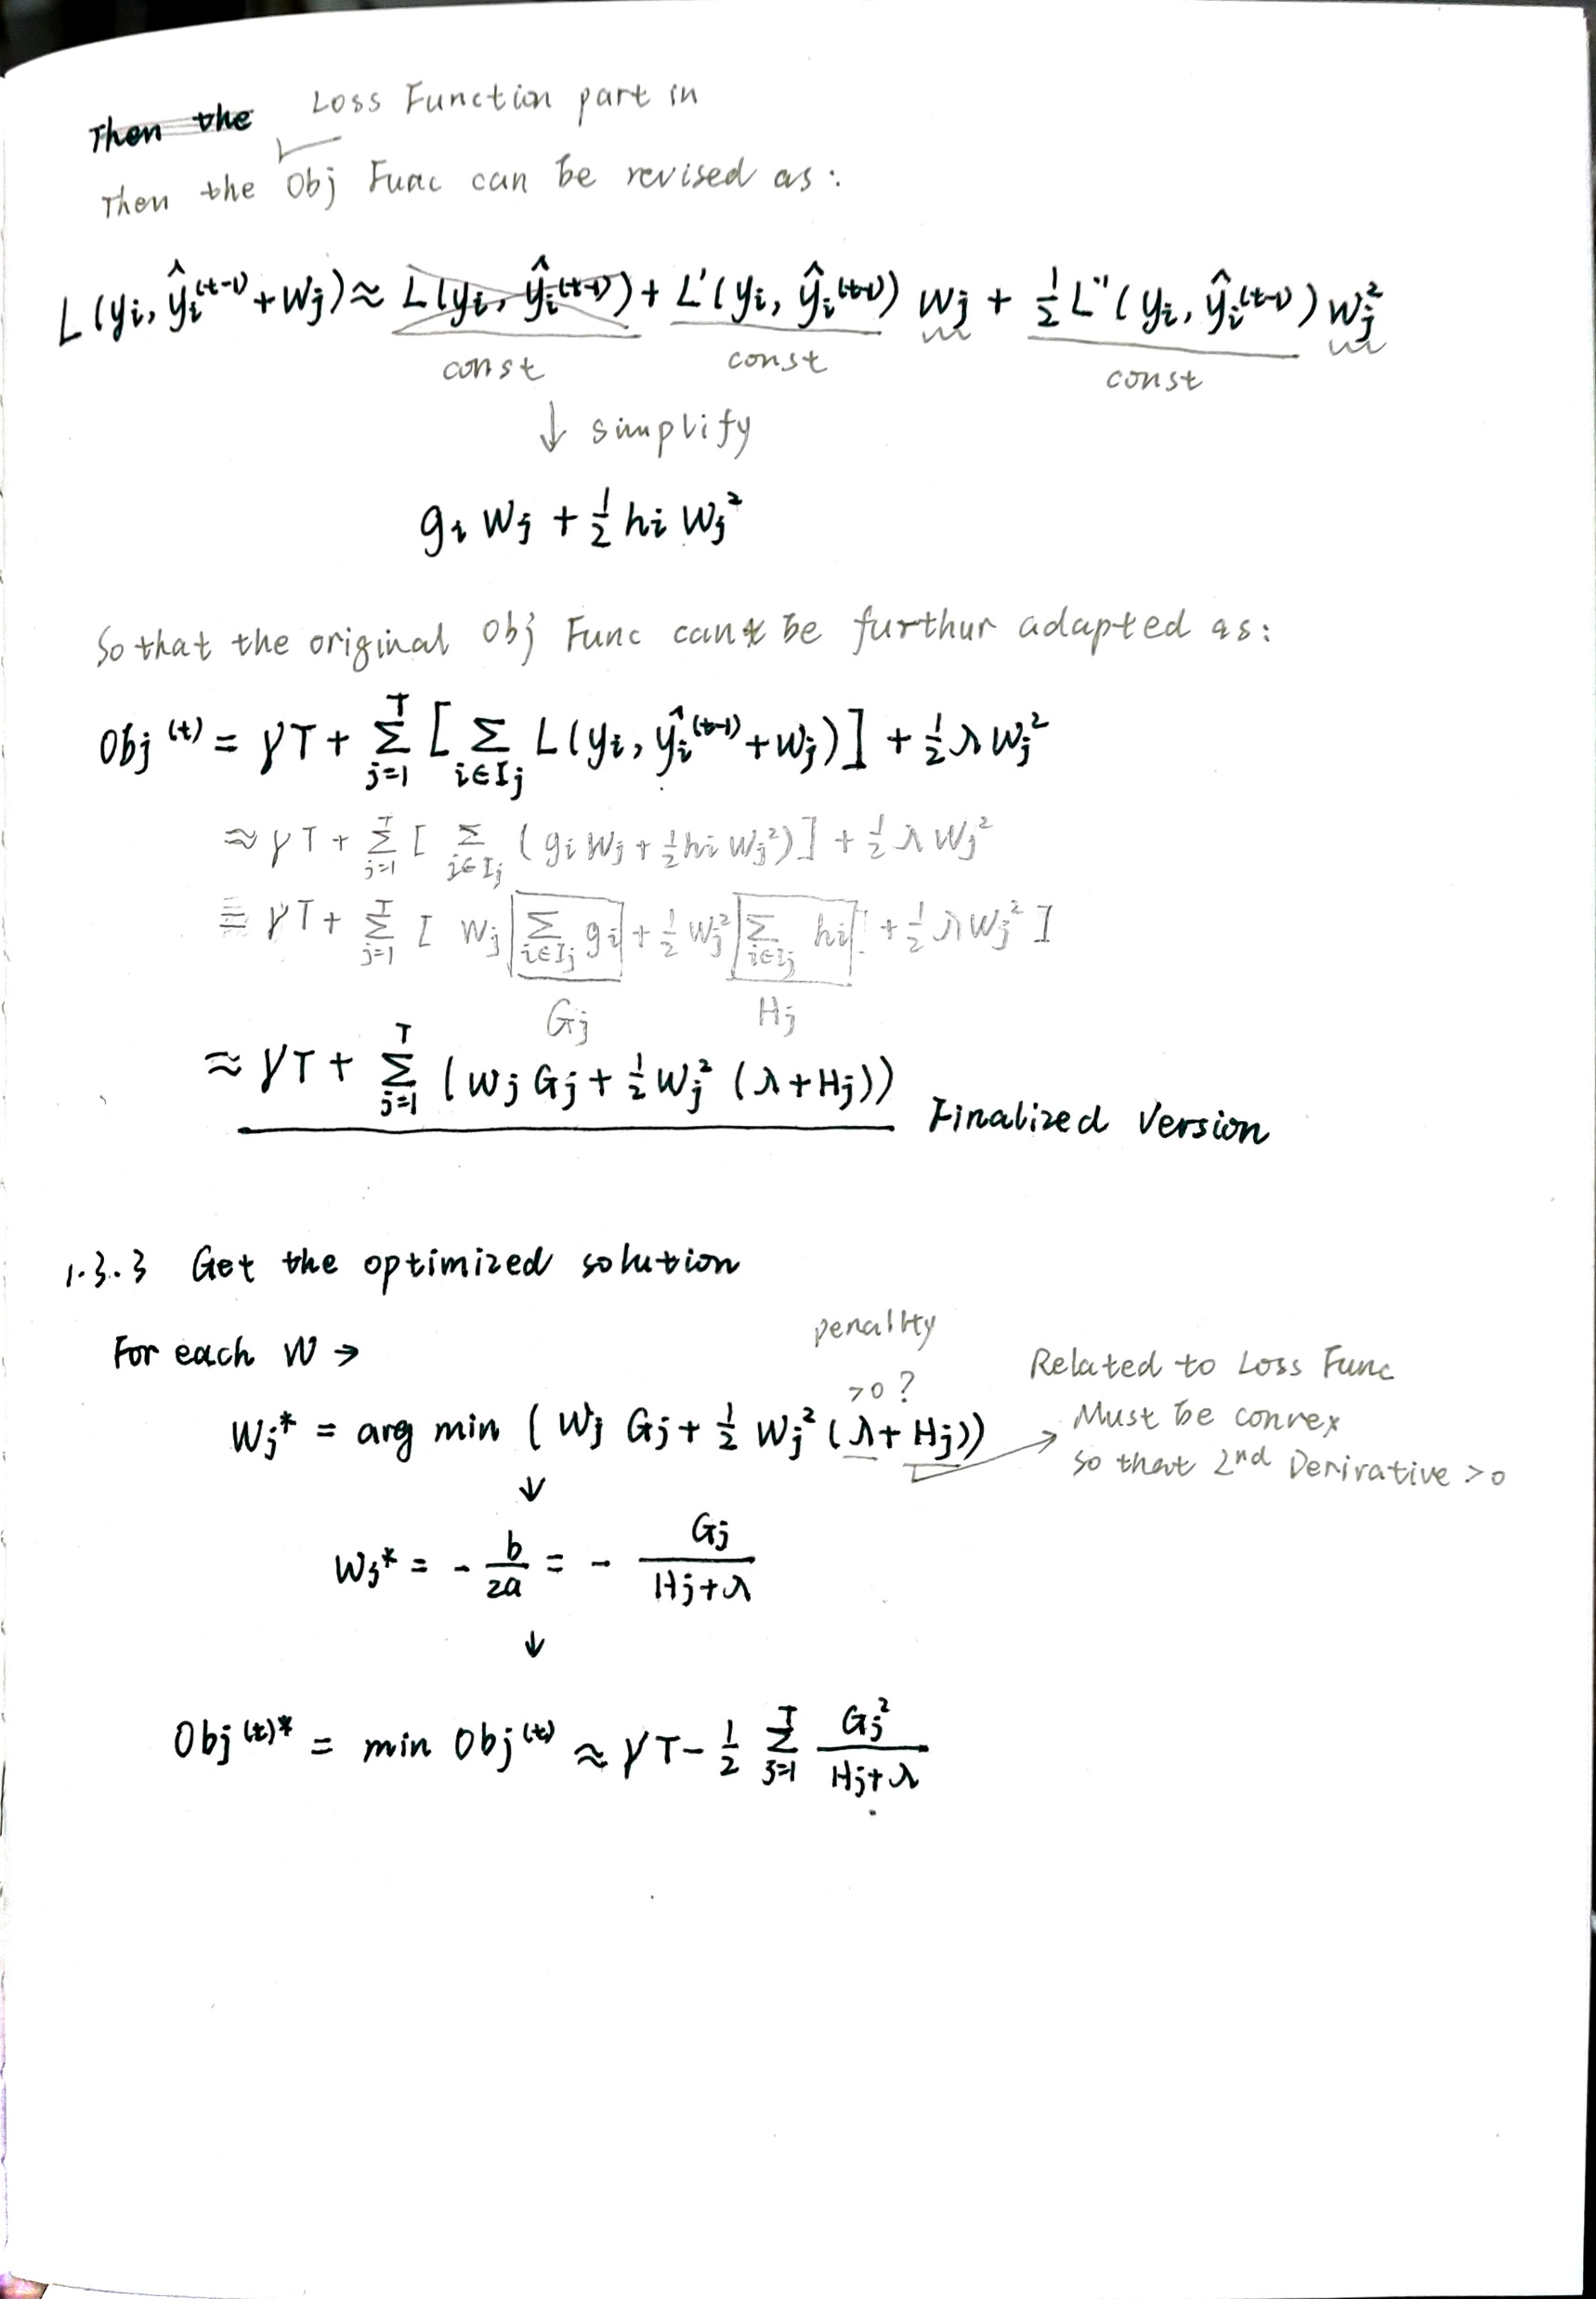 Then the Loss Function part in
Then the Obj Func can be revised as:
L(yi, ŷi^(t-1) + Wj) ≈ L(yi, ŷi^(t-1)) + L'(yi, ŷi^(t-1)) Wj + 1/2 L''(yi, ŷi^(t-1)) Wj^2
const const const
↓ simplify
gi Wj + 1/2 hi Wj^2
So that the original Obj Func can be furthur adapted as:
Obj^(t) = γT + Σ_{j=1}^{T} [ Σ_{i∈Ij} L(yi, ŷi^(t-1) + Wj) ] + 1/2 λ Wj^2
≈ γT + Σ_{j=1}^{T} [ Σ_{i∈Ij} (gi Wj + 1/2 hi Wj^2) ] + 1/2 λ Wj^2
= γT + Σ_{j=1}^{T} [ Wj Σ_{i∈Ij} gi + 1/2 Wj^2 Σ_{i∈Ij} hi + 1/2 λ Wj^2 ]
Gj Hj
≈ γT + Σ_{j=1}^{T} (Wj Gj + 1/2 Wj^2 (λ + Hj)) Finalized Version
1.3.3 Get the optimized solution
For each W →
penallty
>0 ?
Wj* = arg min (Wj Gj + 1/2 Wj^2 (λ + Hj))
Related to Loss Func
Must be convex
so that 2nd Derirative >0
↓
Wj* = - b/2a = - Gj/(Hj+λ)
↓
Obj^(t)* = min Obj^(t) ≈ γT - 1/2 Σ_{j=1}^{T} Gj^2/(Hj+λ)